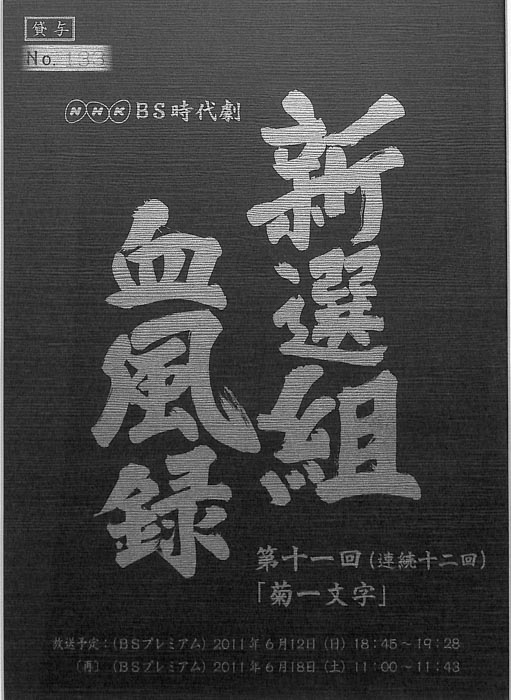 貸与
No. 133
NHK BS時代劇
新選組
血風録
第十一回(連続十二回)
「菊一文字」
放送予定:(BSプレミアム) 2011年6月12日(日) 18:45~19:28
〔再〕(BSプレミアム) 2011年6月18日(土) 11:00~11:43